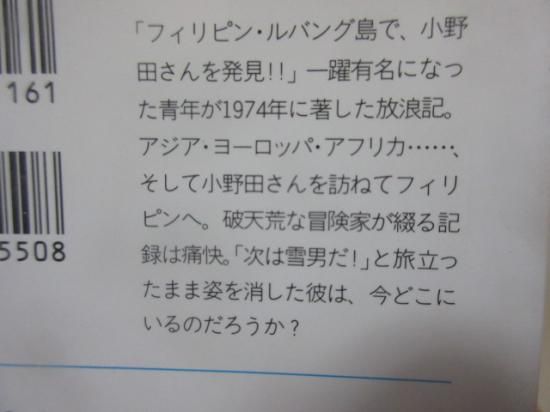 「フィリピン・ルバング島で、小野
田さんを発見!!」一躍有名になっ
た青年が1974年に著した放浪記。
アジア・ヨーロッパ・アフリカ……、
そして小野田さんを訪ねてフィリ
ピンへ。破天荒な冒険家が綴る記
録は痛快。「次は雪男だ!」と旅立っ
たまま姿を消した彼は、今どこに
いるのだろうか?
161
5508